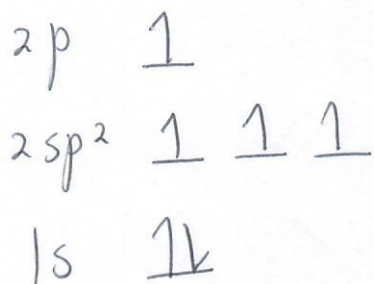 2p 1
2sp² 1 1 1
1s 1⇂